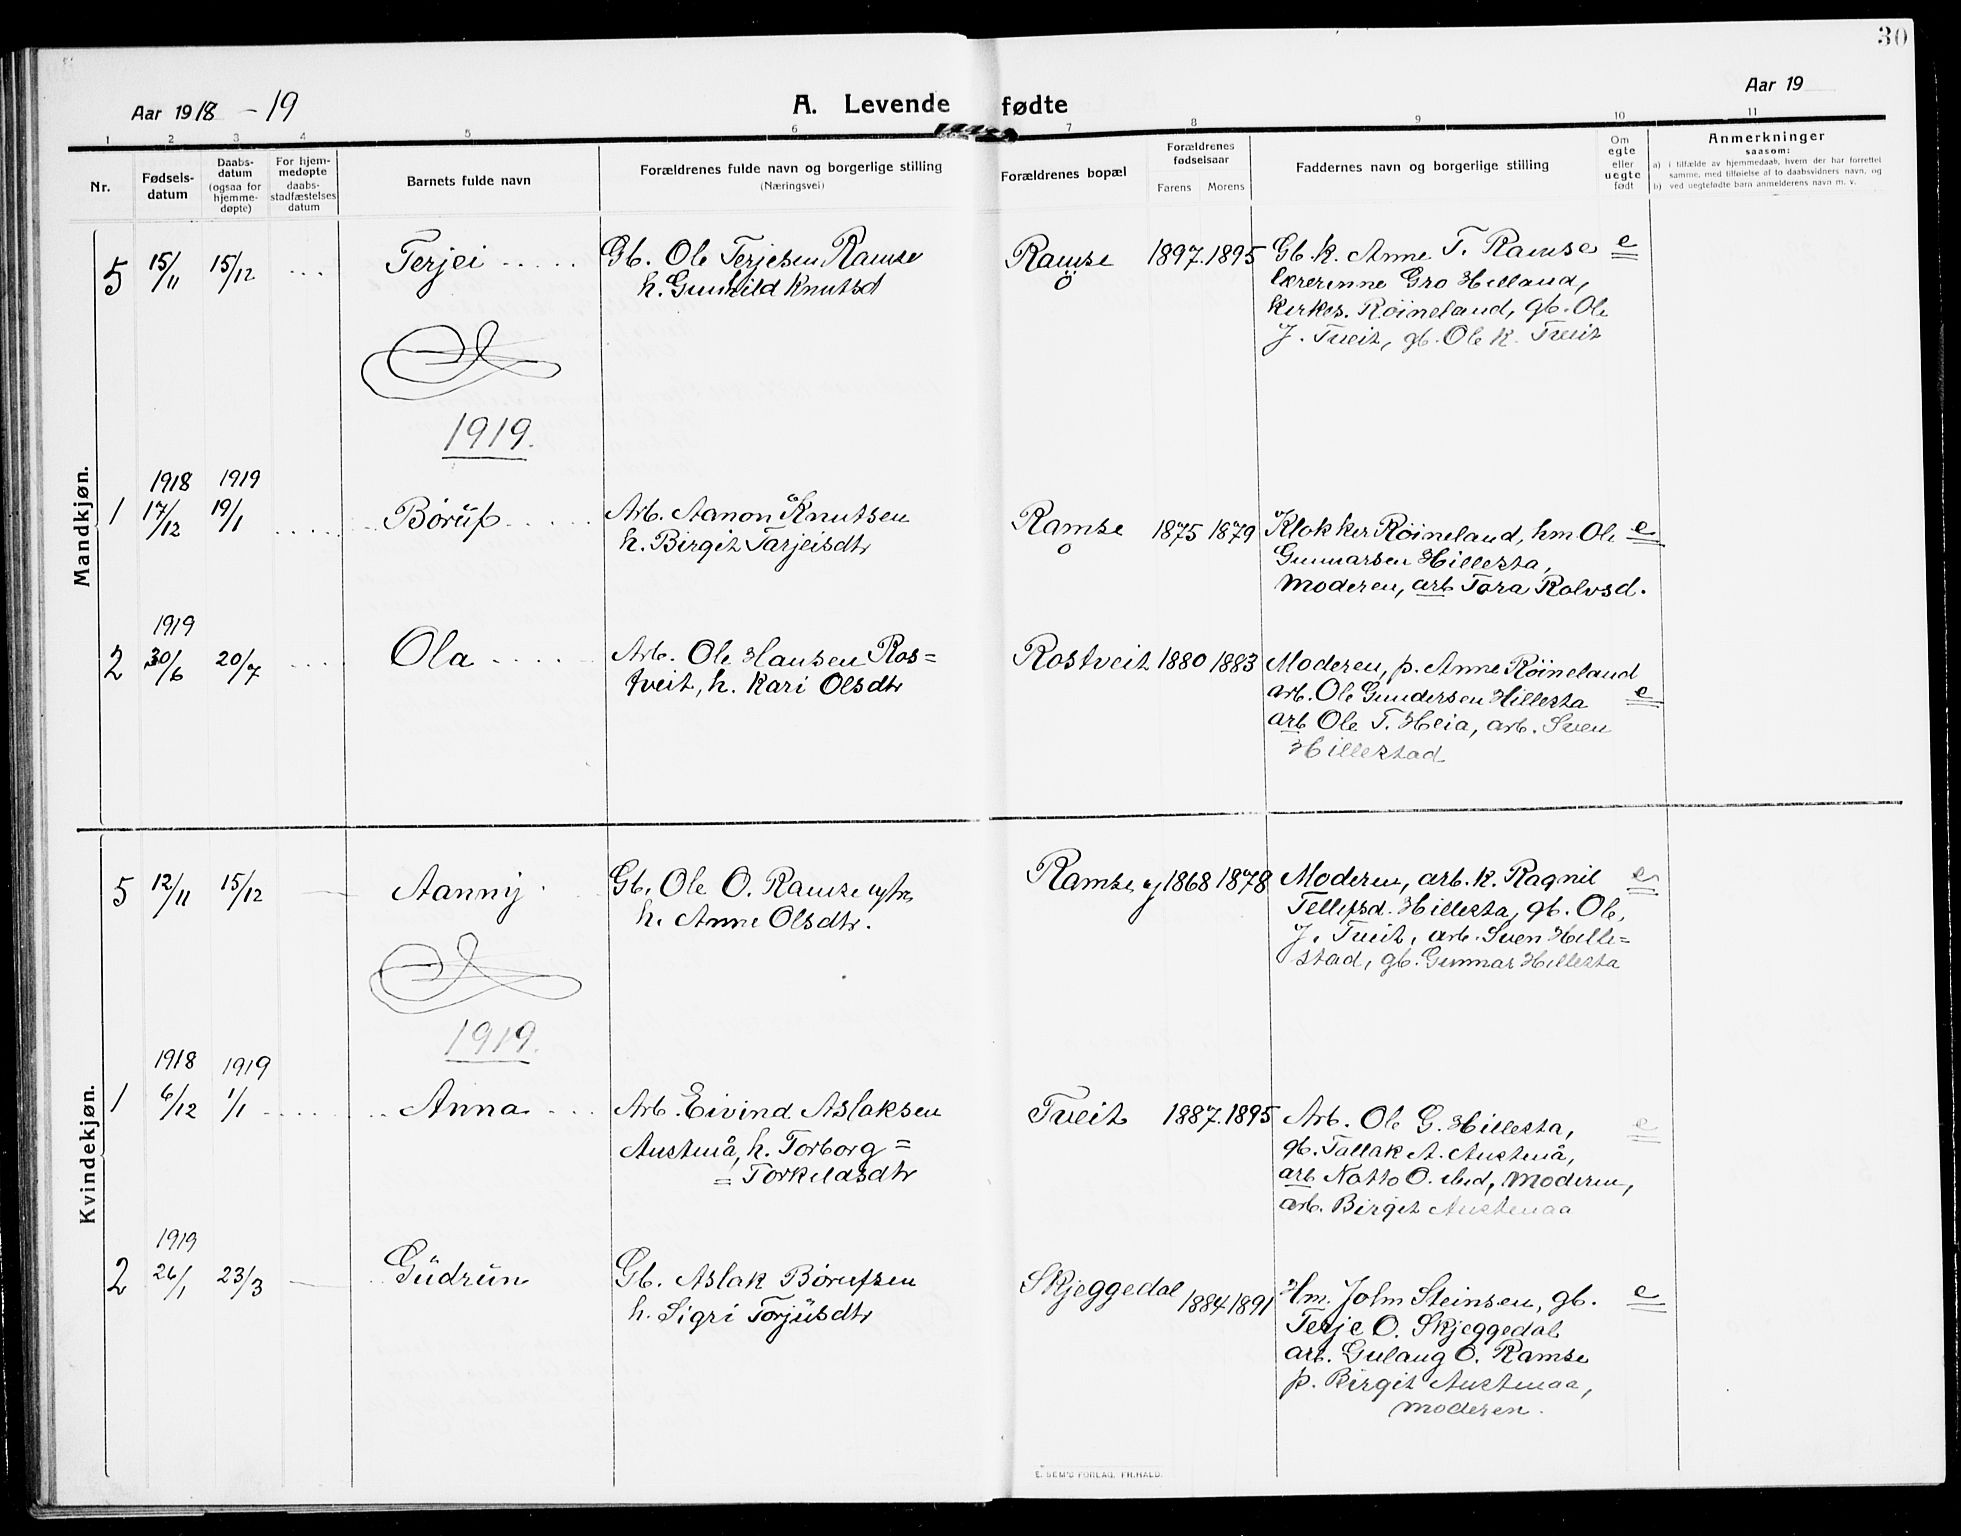 30
Aar 1918 - 19
A. Levende fødte
Aar 19
1 2 3 4 5 6 7 8 9 10 11
Nr.
Fødsels-
datum
Daabs-
datum
(ogsaa for
hjemme-
døpte)
For hjem-
medøpte
daabs-
stadfæstelses
datum
Barnets fulde navn
Forældrenes fulde navn og borgerlige stilling
(Næringsvei)
Forældrenes bopæl
Forældrenes
fødselsaar
Farens Morens
Faddernes navn og borgerlige stilling
Om
egte
eller
uegte
født
Anmerkninger
saasom:
a) i tilfælde av hjemmedaab, hvem der har forrettet
samme, med tilføielse af to daabsvidners navn, og
b) ved uegtefødte barn anmelderens navn m. v.
Mandkjøn.
5 15/11 15/12 ... Terjei ..... Gb. Ole Terjesen Ramse
h. Gunhild Knutsd
Ramse ö 1897. 1895
Gb. k. Anne T. Ramse e
lærerinne Gro Hilland,
kirkes. Röineland, gb. Ole
J. Tveit, gb. Ole K. Tveit
1919.
1918 1919
1 17/12 19/1 .... Börüf ..... Arb. Aanon Knutsen
h. Birgit Tarjeisdtr
Ramse ö 1875 1879
Klokker Röineland, hm Ole e
Gunnarsen Hillesta,
Moderen, arb Tora Rolvsd.
1919
2 30/6 20/7 .... Ola ..... Arb. Ole Hansen Ros=
tveit, h. Kari Olsdtr
Rostveit 1880 1883
Moderen, p. Anne Röineland
arb. Ole Gundersen Hillesta e
arb Ole T. Heia, arb. Sven
Hillestad
Kvindekjøn.
5 12/11 15/12 — Aanny . Gb. Ole O. Ramse ystre
h. Anne Olsdtr.
Ramse y 1868 1878
Moderen, arb. k. Ragnil e
Tellefsd. Hillesta, gb. Ole
J. Tveit, arb. Sven Hille=
stad, gb. Gunnar Hillesta
1919.
1918 1919
1 6/12 1/1 .... Anna .... Arb. Eivind Aslaksen
Austenå, h. Torborg =
= Torkildsdtr
Tveit 1887. 1895
Arb. Ole G. Hillesta, e
gb. Tallak A. Austenå,
arb Natto O. ibid, Moderen,
arb. Birgit Austenaa
1919
2 26/1 23/3 — Güdrün Gb. Aslak Börufsen
h. Sigri Torjüsdtr
Skjeggedal 1884 1891
Hm. John Steinsen, gb. e
Terje O. Skjeggedal
arb. Gulaug O. Ramse
p. Birgit Austenaa,
moderen.
E. SEM'S FORLAG, FR.HALD.